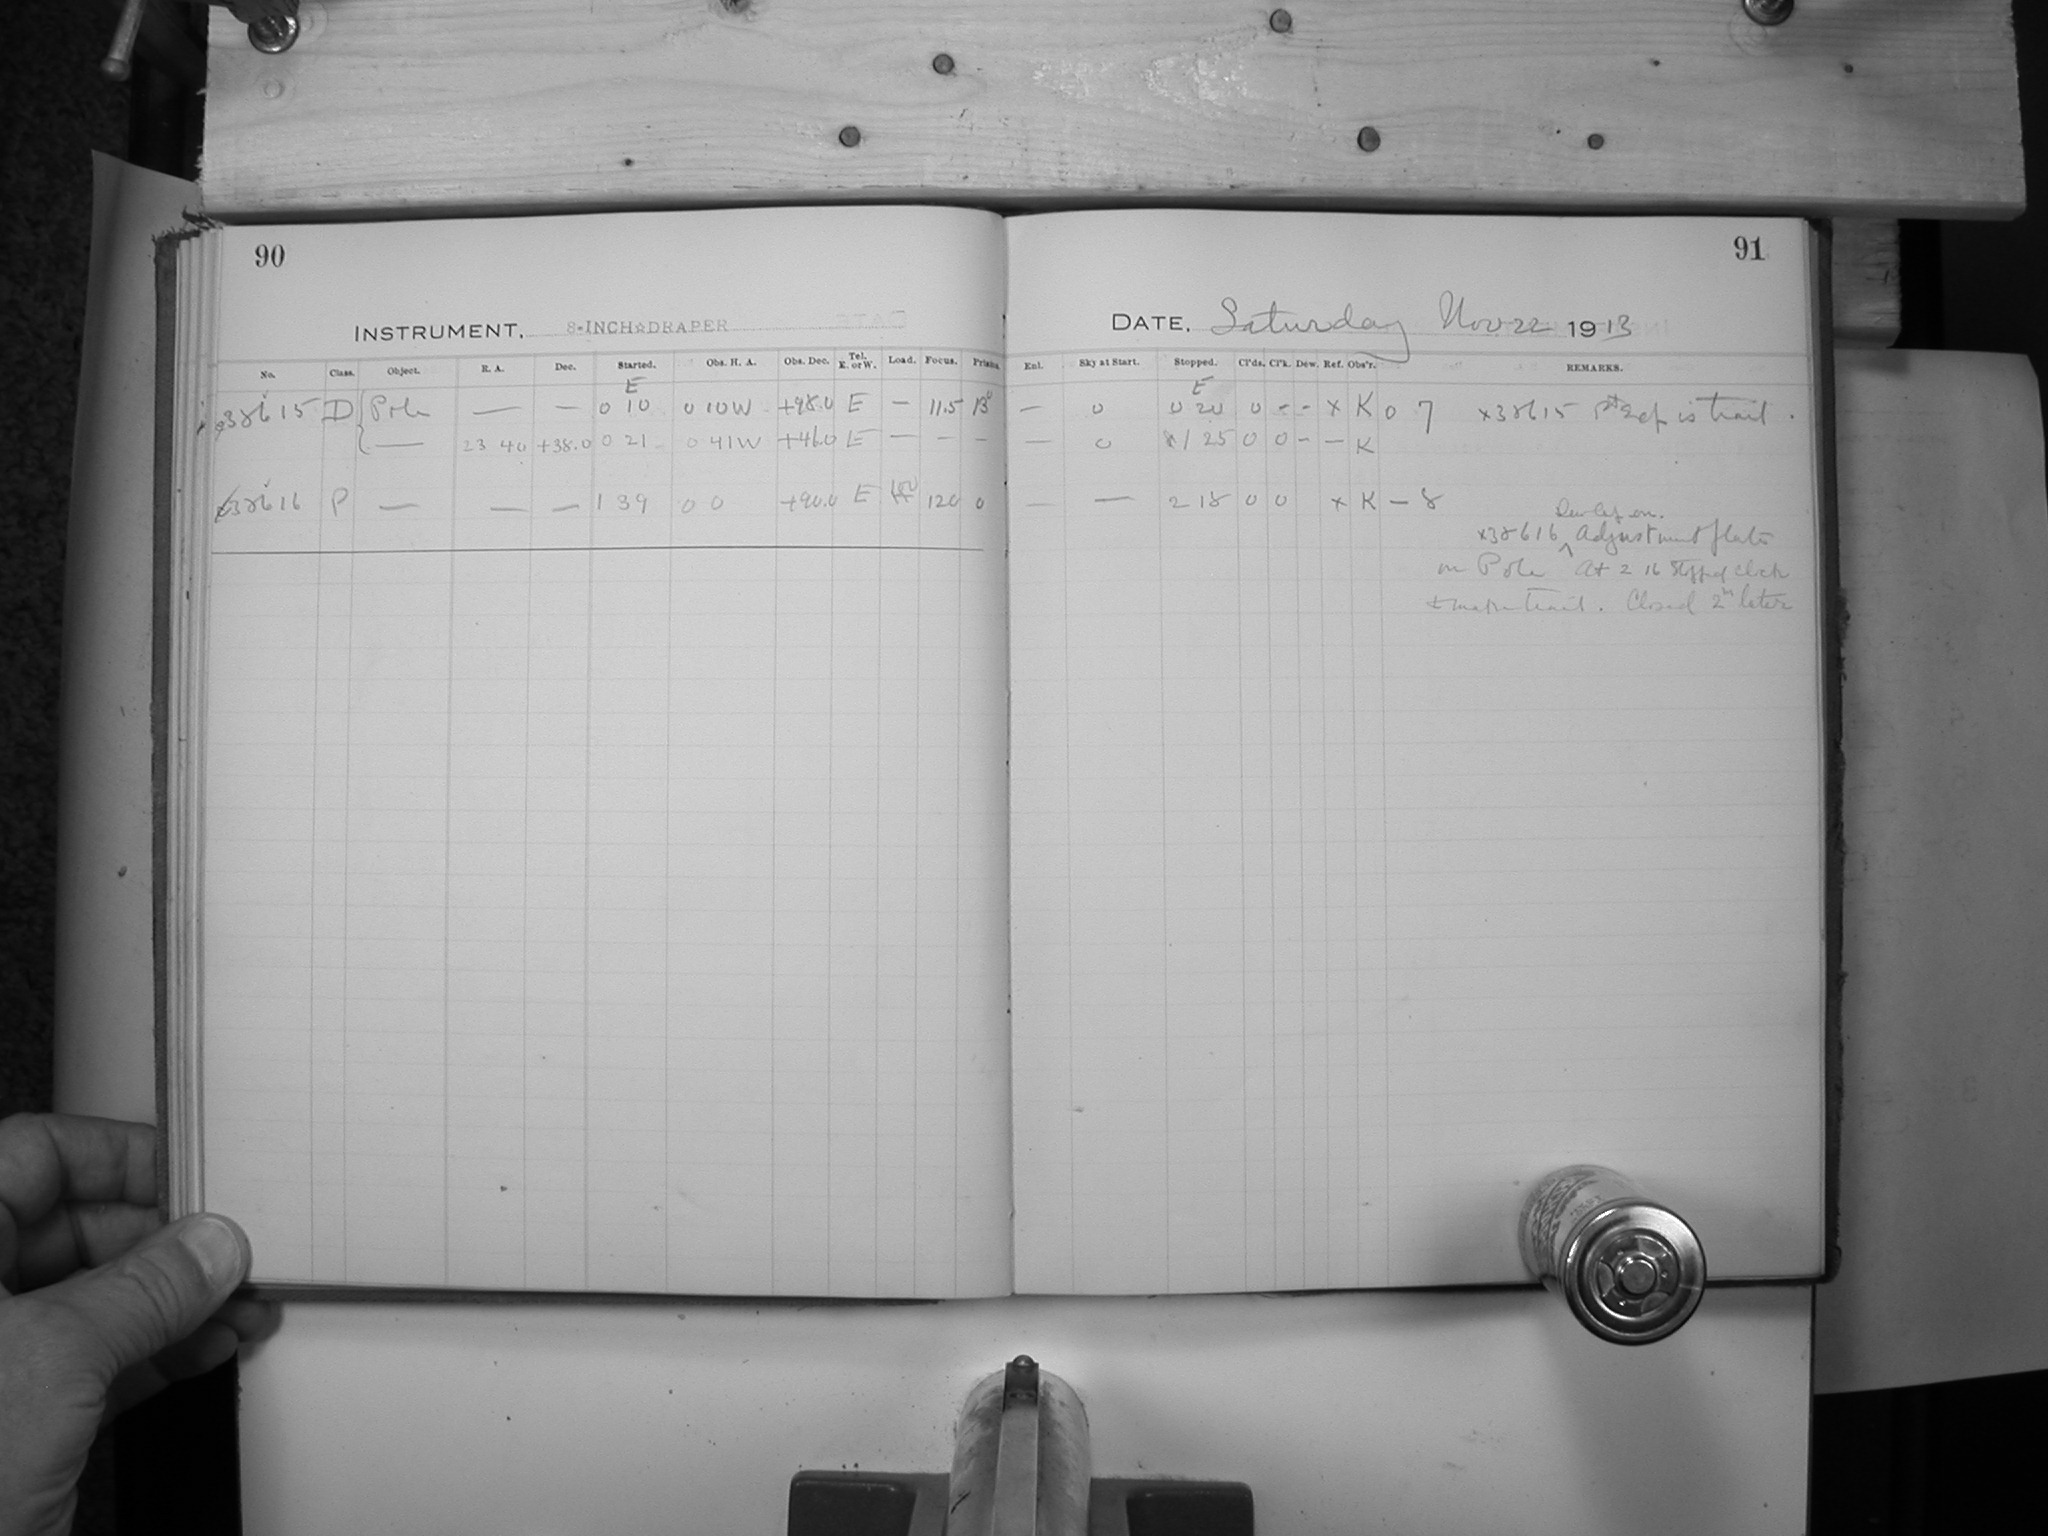 90
91
INSTRUMENT. 8-INCH☆DRAPER
DATE. Saturday Nov 22 1913
No. Class. Object. R. A. Dec. Started. Obs. H. A. Obs. Dec. Tel. E. or W. Load. Focus. Prisms.
Enl. Sky at Start. Stopped. Cl'ds. Cl'k. Dew. Ref. Obs'r. REMARKS.
E
E
38615 D Pole — — 0 10 0 10W +98.0 E — 11.5 13
— 0 0 20 0 - - x K 0 7 x38615 1st is trail.
— 23 40 +38.0 0 21 0 41W +46.0 E — — —
— 0 1 25 0 0 — — K
38616 P — — — 1 39 0 0 +90.0 E 120 0
— — 2 18 0 0 x K — 8
Dewcap on.
x38616 ^ Adjustment plate
on Pole At 2 16 stopped clock
+ make trail. Closed 2m later